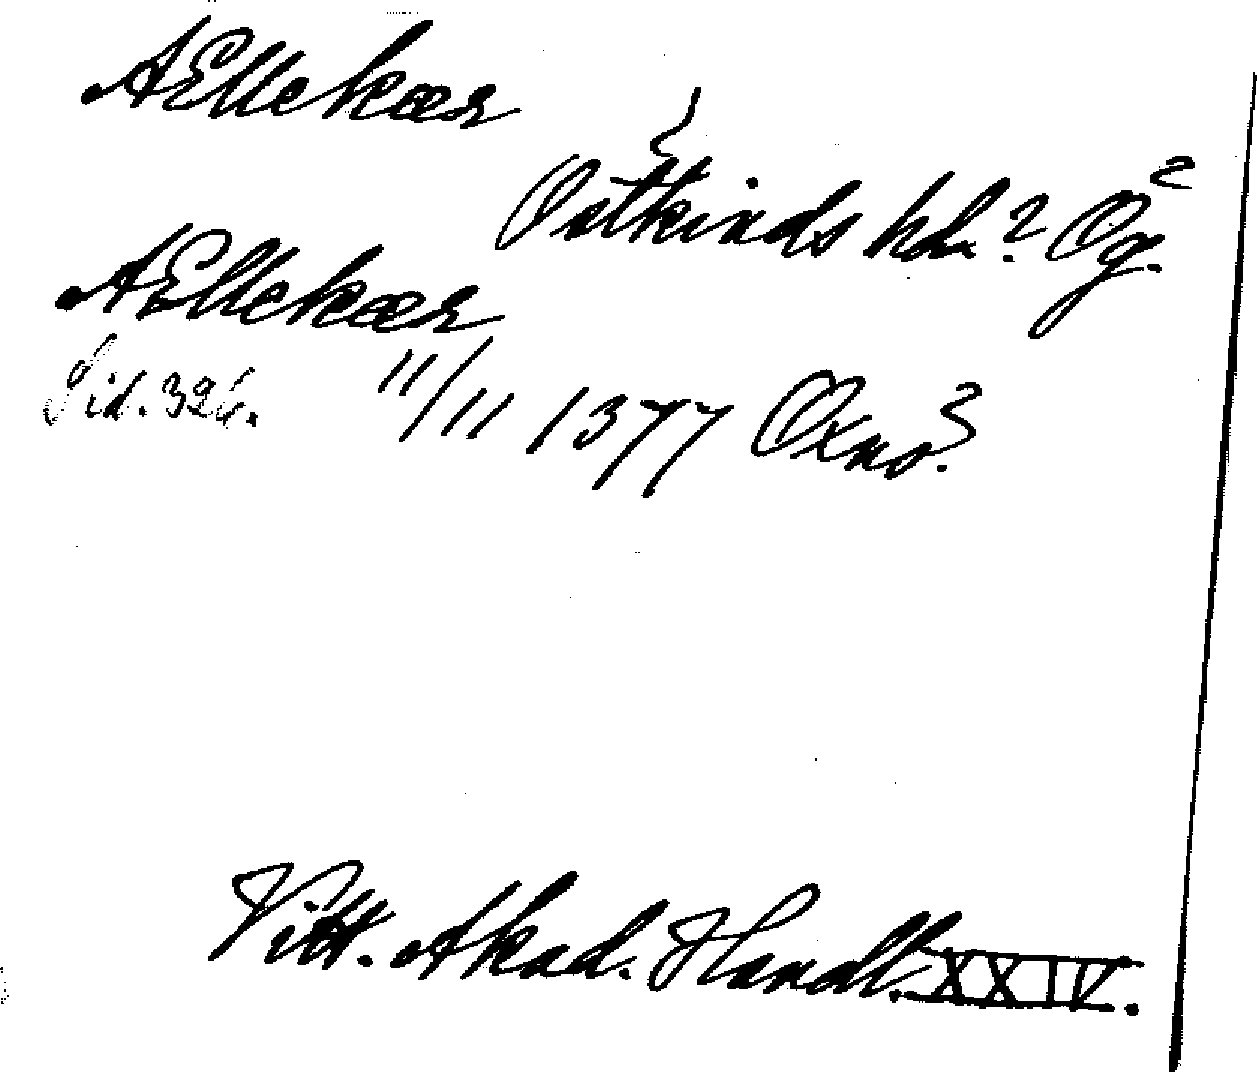 AEllekær
Östkinds hd.? Ög.?
AEllekær
Sid. 326. 11/11 1377 Oxnö?
Vitt. Akad. Handl. XXIV.